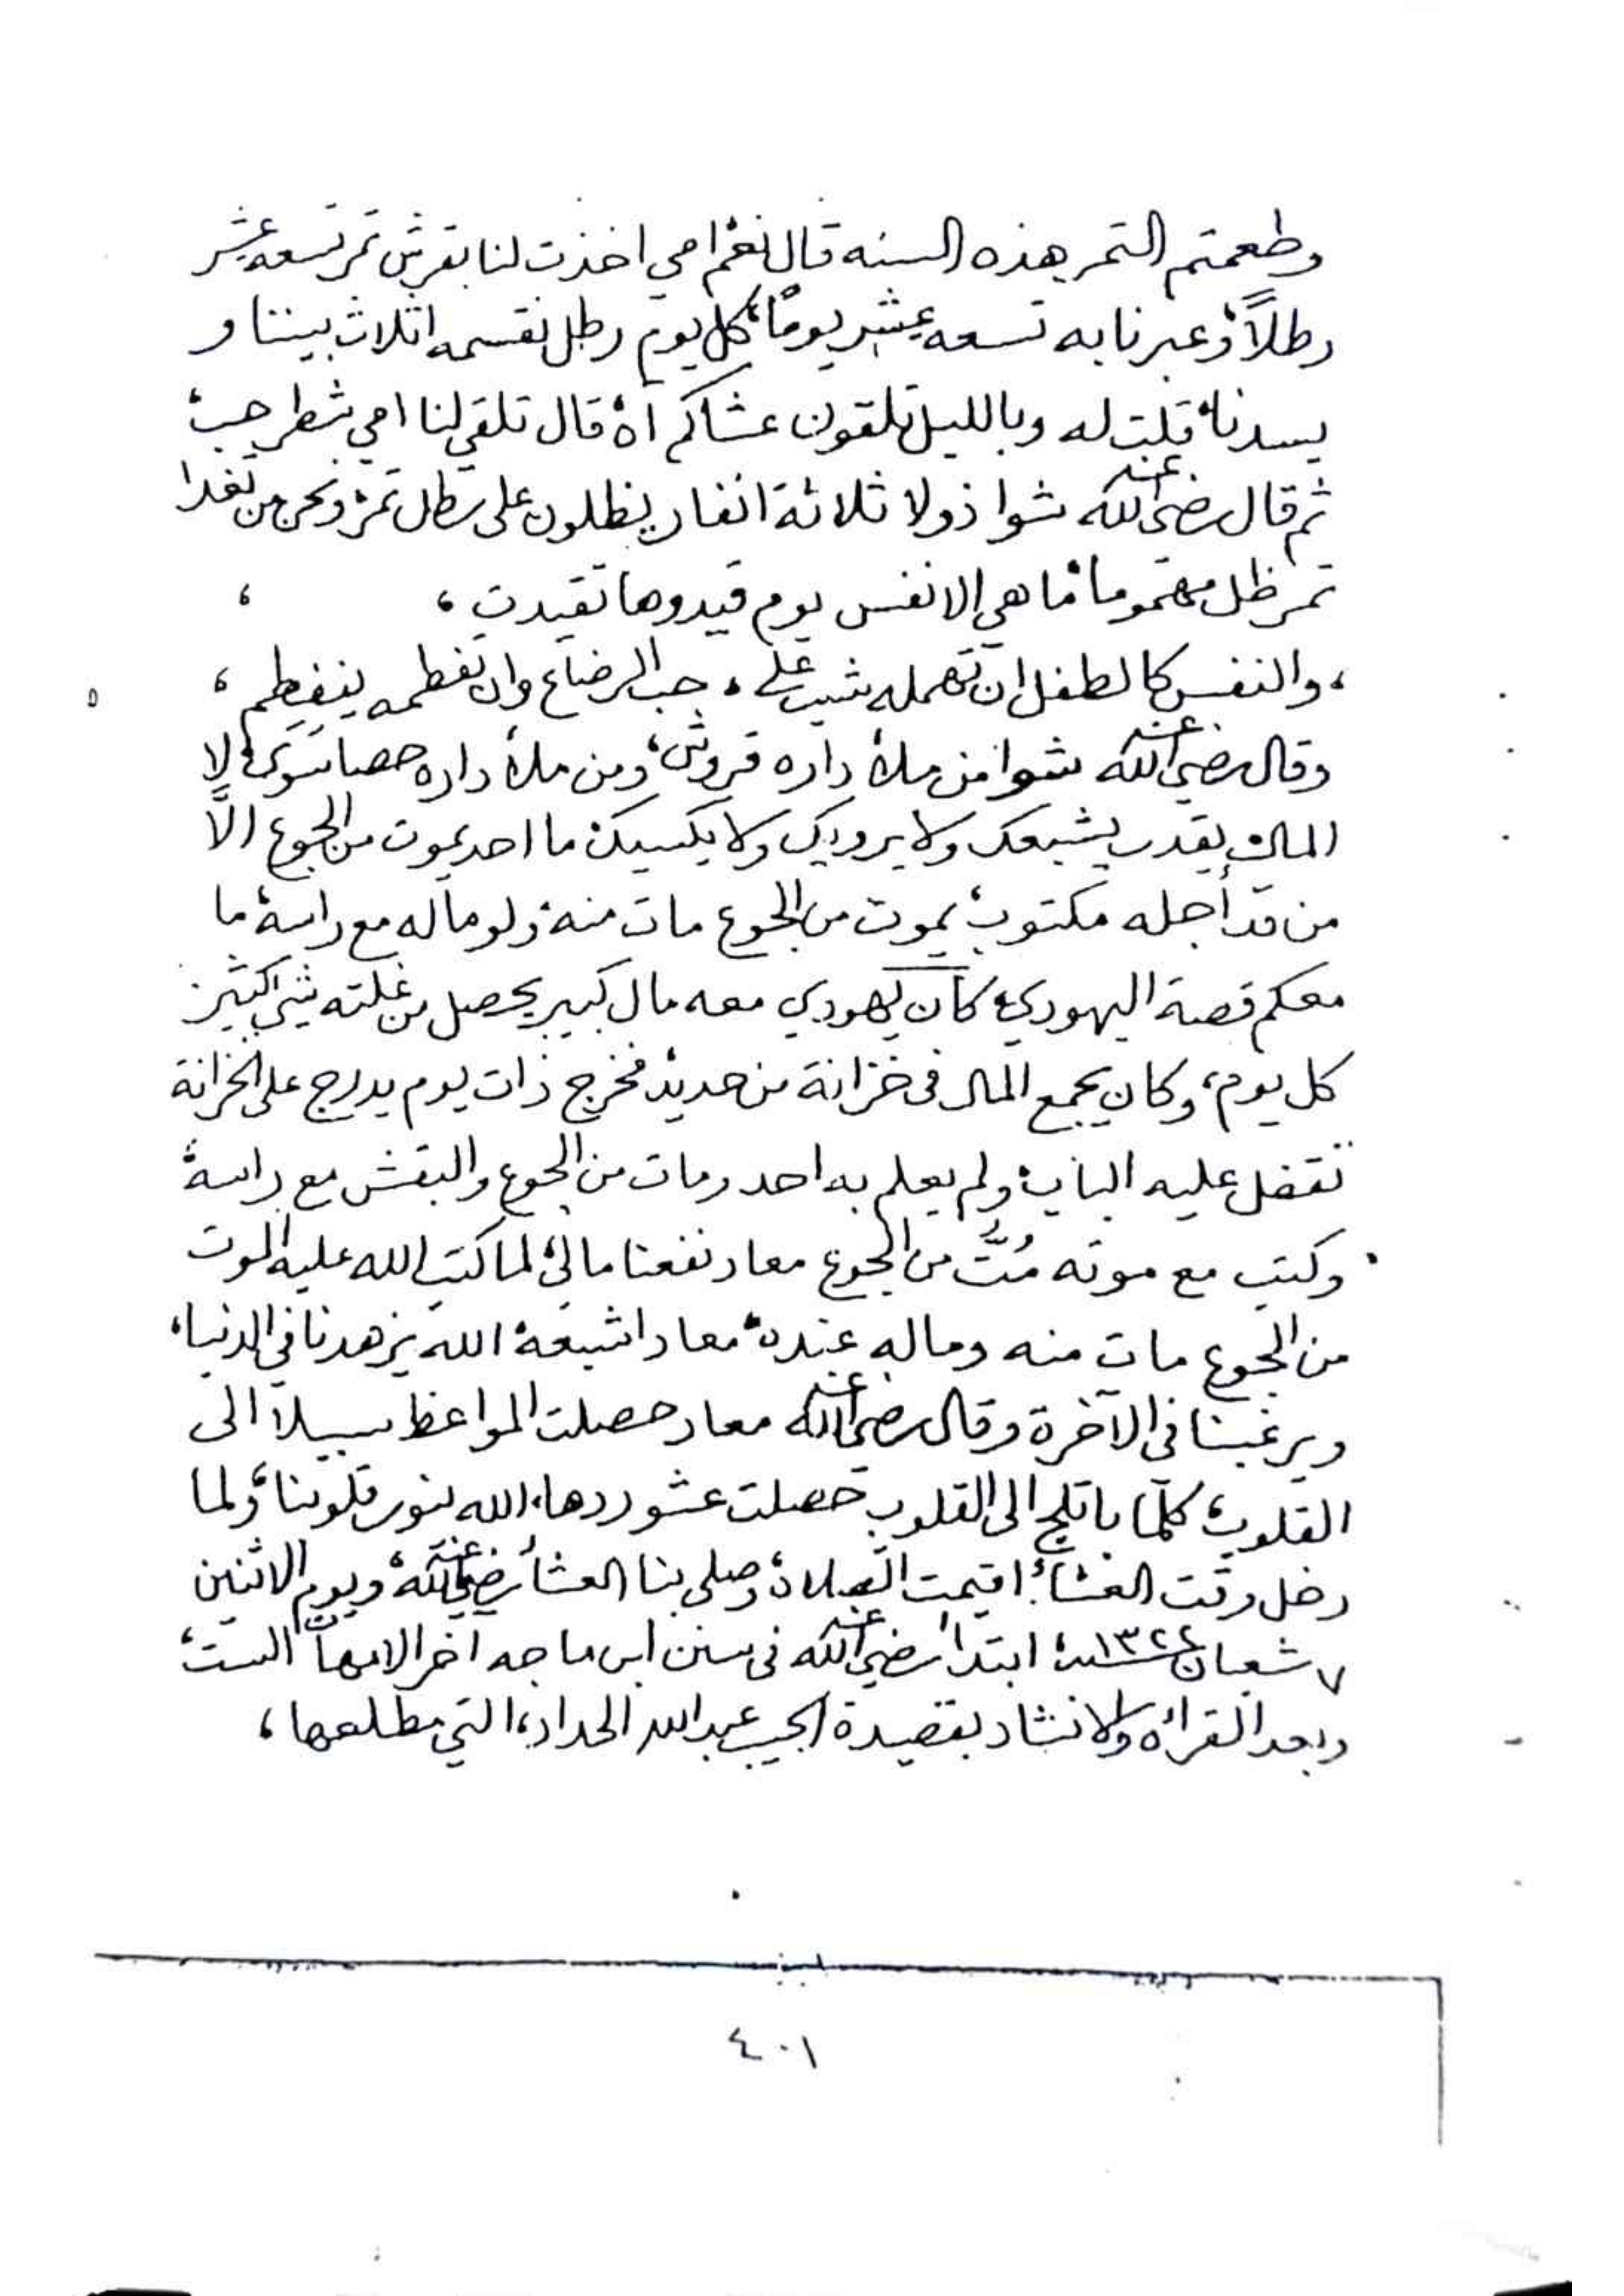 وطعمتم التمر هذه السنه قال نعم امي اخذت لنا بقرش تمر تسعه عشر
رطلاً، وعبرنا به تسعه عشر يومًا، كل يوم رطل نقسمه اثلاث بيننا و
يسدنا، قلت له وبالليل تلقون عشاكم اه، قال تلقي لنا امي شطر حب،
ثم قال رضي الله عنه شوا ذولا ثلاثة انفار يظلون على رطل تمر، ونحن من تغدا
تمر ظل مهموما، ما هي الا نفس يوم قيدوها تقيدت ،
، والنفس كالطفل ان تهمله شب على ، حب الرضاع وان تفطمه ينفطم ،
وقال رضي الله عنه شوا من ملأ داره قروش، ومن ملأ داره حصا سَوَى، لا
المال يقدر يشبعك ولا يرويك ولا يكسيك، ما احد يموت من الجوع الَّا
من قد أجله مكتوب، يموت من الجوع مات منه، ولو ماله مع راسه، ما
معكم قصة اليهودي، كان يهودي معه مال كبير يحصل من غلته شي كثير
كل يوم، وكان يجمع المال في خزانة من حديد، فخرج ذات يوم يدرج على الخزانة
تقفل عليه الباب، ولم يعلم به احد ومات من الجوع والبقش مع راسه،
وكتب مع موته مُتُّ من الجوع معاد نفعنا مالي، لما كتب الله عليه الموت
من الجوع مات منه وماله عنده، معاد اشبعه، الله يزهدنا في الدنيا،
ويرغبنا في الآخرة وقال رضي الله عنه معاد حصلت المواعظ سبيلا الى
القلوب، كلما باتلج الى القلوب حصلت عشو ردها، الله ينور قلوبنا، ولما
دخل وقت العشاء، اقيمت الصلاة، وصلى بنا العشاء رضي الله عنه، ويوم الاثنين
٧ شعبان ١٣٢٤سنة، ابتدأ رضي الله عنه في سنن ابن ماجه آخر الامهات الست،
وبعد القراءه والانشاد بقصيدة الحبيب عبدالله الحداد، التي مطلعها ،
٤٠١